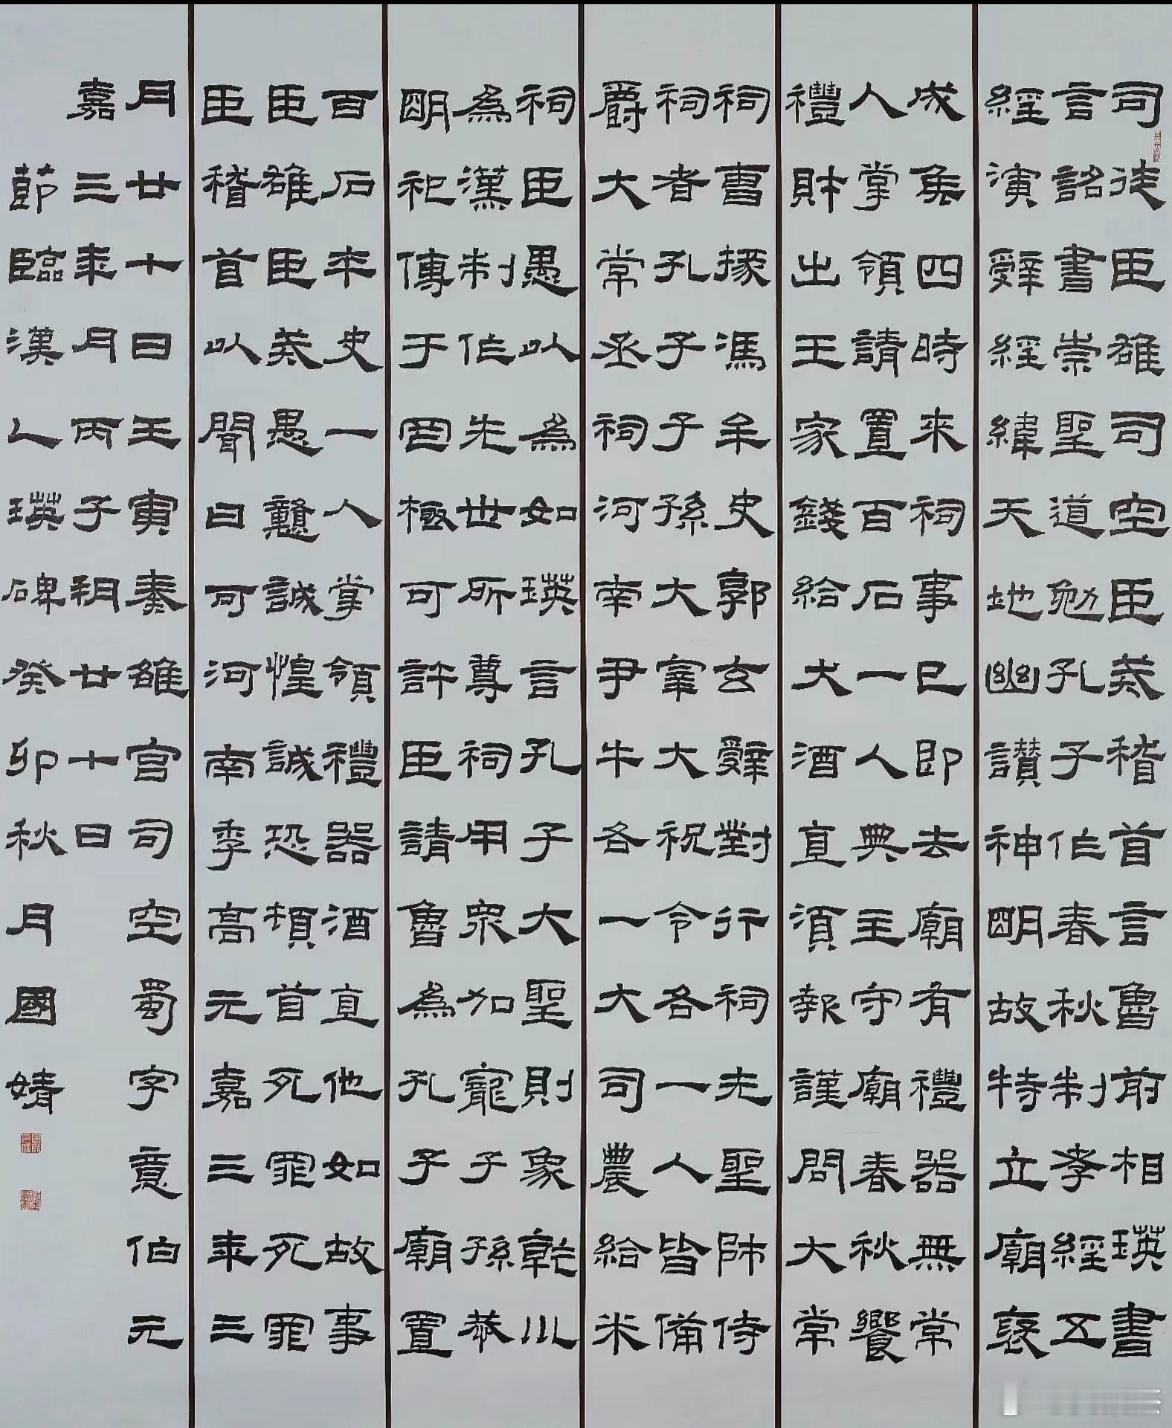 司徒臣雄司空臣戒稽首言魯前相瑛書
言詔書崇聖道勉孔子作春秋制孝經五
經演辭經緯天地幽讚神明故特立廟褒
成侯四時來祠事已即去廟有禮器無常
人掌領請置百石一人典主守廟春秋饗
禮財出王家錢給犬酒直須報謹問大常
祠曹掾馮牟史郭玄辭對行祠先聖師侍
祠者孔子子孫大宰大祝令各一人皆備
爵大常丞祠河南尹牛各一大司農給米
祠臣愚以為如瑛言孔子大聖則象乾川
為漢制作先世所尊祠用眾加寵子孫恭
明祀傳于罔極可許臣請魯為孔子廟置
百石卒史一人掌領禮器酒直他如故事
臣雄臣戒愚戇誠惶誠恐頓首死罪死罪
臣稽首以聞曰可河南季高元嘉三年三
月廿七日壬寅奏雒宮司空蜀字意伯元
嘉三年月丙子朔廿七日
節臨漢乙瑛碑癸卯秋月國婧